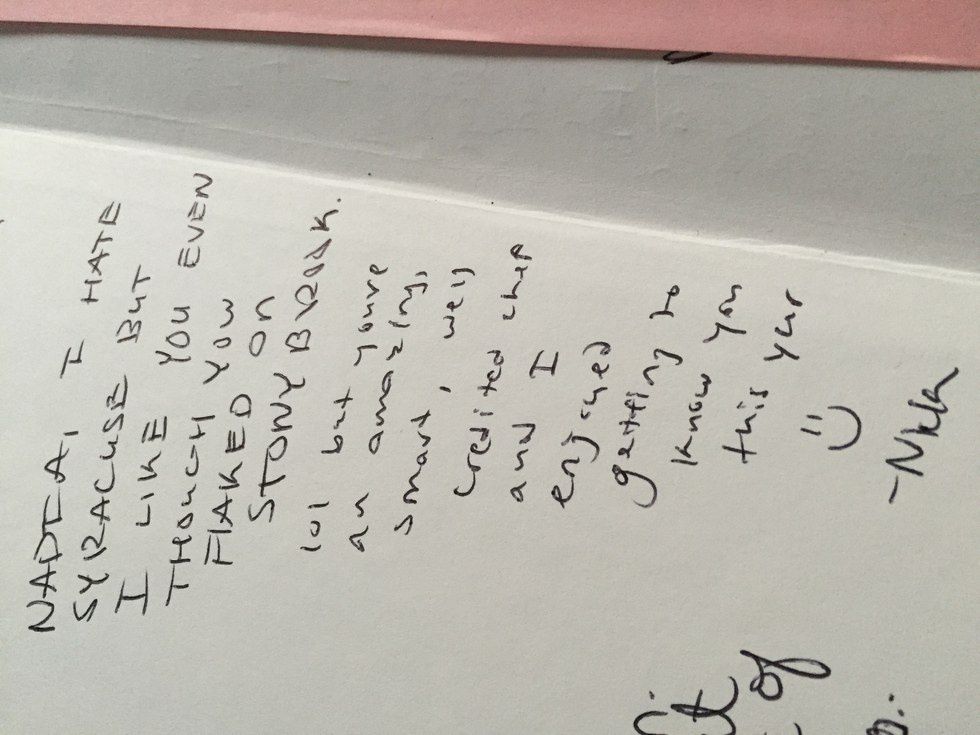 NADIA, I HATE
SYRACUSE BUT
I LIKE YOU EVEN
THOUGH YOU
FLAKED ON
STONYBROOK.
lol but youre
an amazing,
smart, well
credited chap
and I
enjoyed
getting to
know you
this year
:)
of